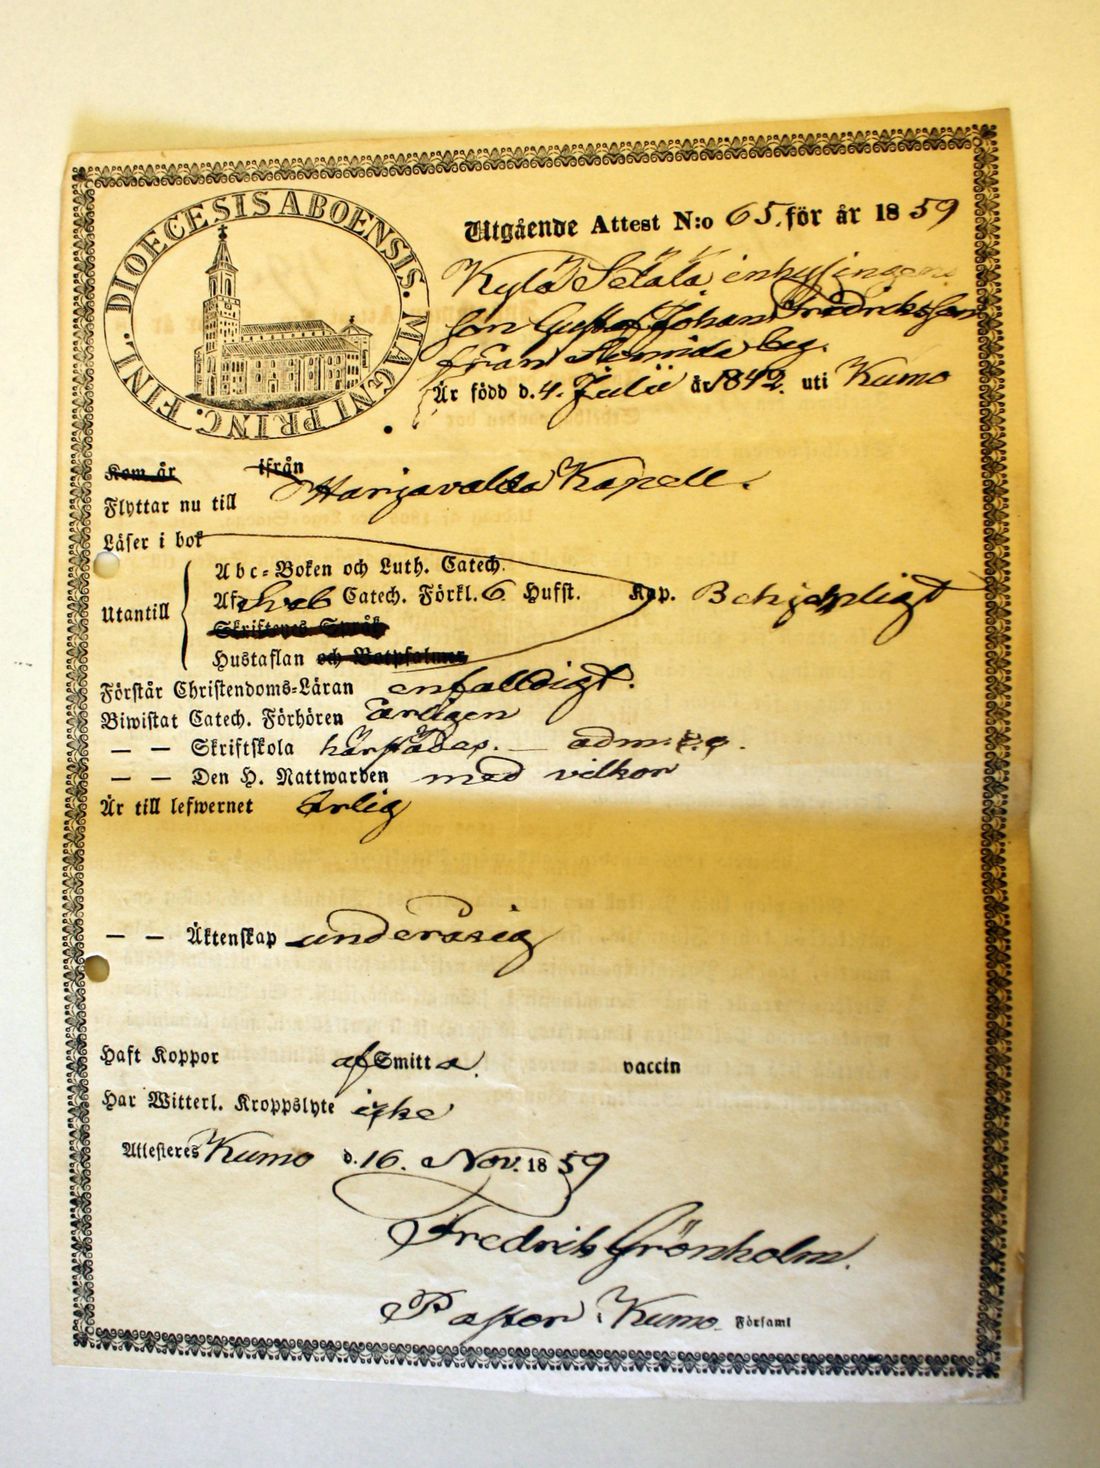 DIOECESIS ABOENSIS. MAGNI PRINC. FINL.
Utgående Attest N:o 65. för år 1859
Kylä Setälä inhysingens
son Gustaf Johan Fredriksson
från
Är född d. 4. Julii år 1842. uti Kumo
Kom år ifrån
Flyttar nu till Harjavalda Kapell.
Läser i bok
Abc-Boken och Luth. Catech.
Utantill Af Sveb Catech. Förkl. 6 Hufst. Kap. Behjelpligt
Skriftenes Språk
Hustaflan och Botpsalmer
Förstår Christendoms-Läran enfalldigt.
Biwistat Catech. Förhören årligen
— — Skriftskola härstädes. — adm.
— — Den H. Nattwarden med vilkor
Är till lefwernet Ärlig
— — Äktenskap underåsig
Haft Koppor af Smitta. vaccin
Har Witterl. Kroppslyte icke
Attesteres Kumo d. 16. Nov. 1859
Fredrik Grönholm.
Pastor i Kumo Församl